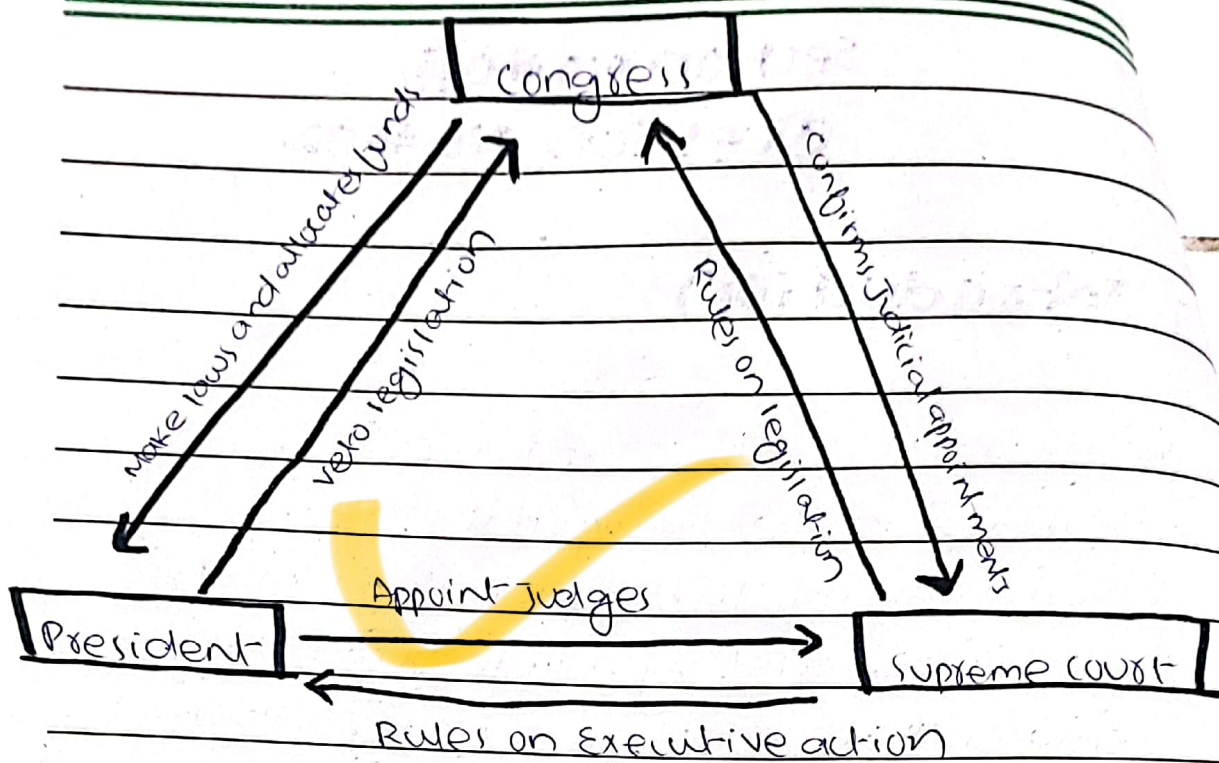 Congress
Make laws and allocates funds
Veto legislation
Rules on legislation
Confirms Judicial appointments
Appoint Judges
President
Supreme Court
Rules on Executive action